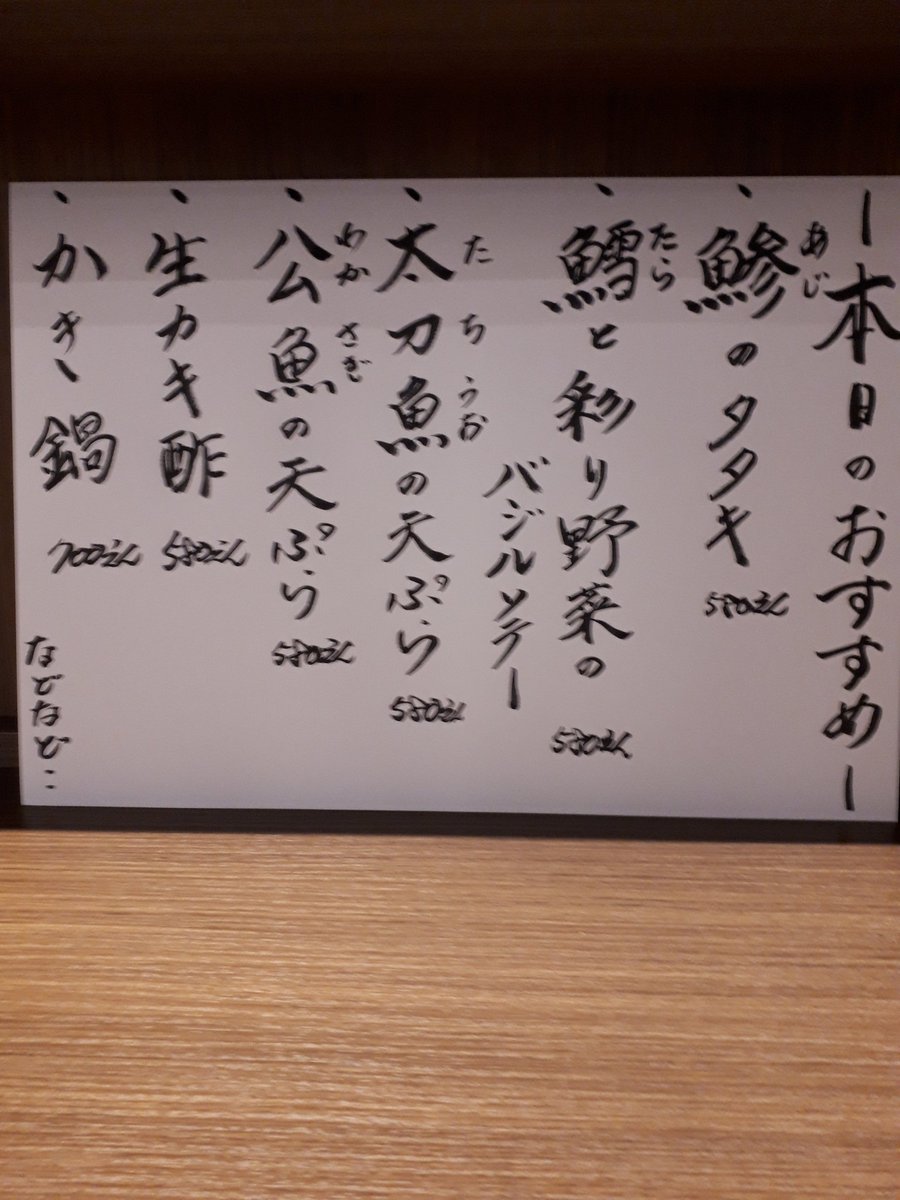 ー本日のおすすめー
・鯵のタタキ 580えん
あじ
・鱈と彩り野菜の
たら
バジルソテー 580えん
・太刀魚の天ぷら 580えん
たちうお
・公魚の天ぷら 580えん
わかさぎ
・生カキ酢 580えん
・かき鍋 700えん
などなど…